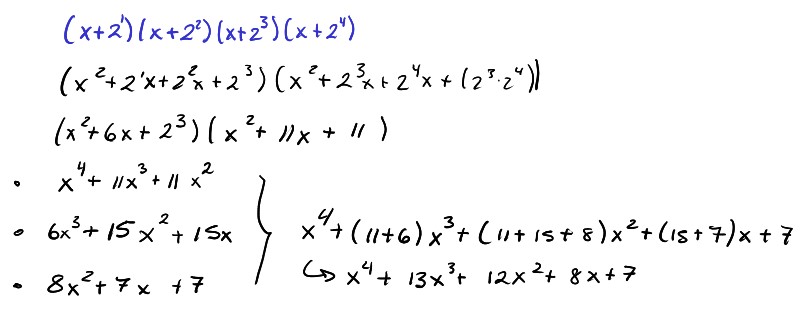 (x+2¹)(x+2²)(x+2³)(x+2⁴)
(x²+2¹x+2²x+2³)(x²+2³x+2⁴x+(2³·2⁴))
(x²+6x+2³)(x²+11x+11)
• x⁴+11x³+11x²
• 6x³+15x²+15x
• 8x²+7x+7
} x⁴+(11+6)x³+(11+15+8)x²+(15+7)x+7
↪ x⁴+13x³+12x²+8x+7